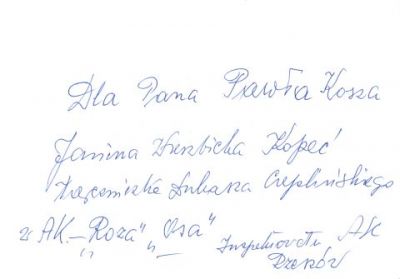 Dla Pana Pawła Kosza
Janina Wierzbicka Kopeć
Łukasza Cieplińskiego
z AK - "Roza" "Osa" Inspektoratu AK
Rzeszów